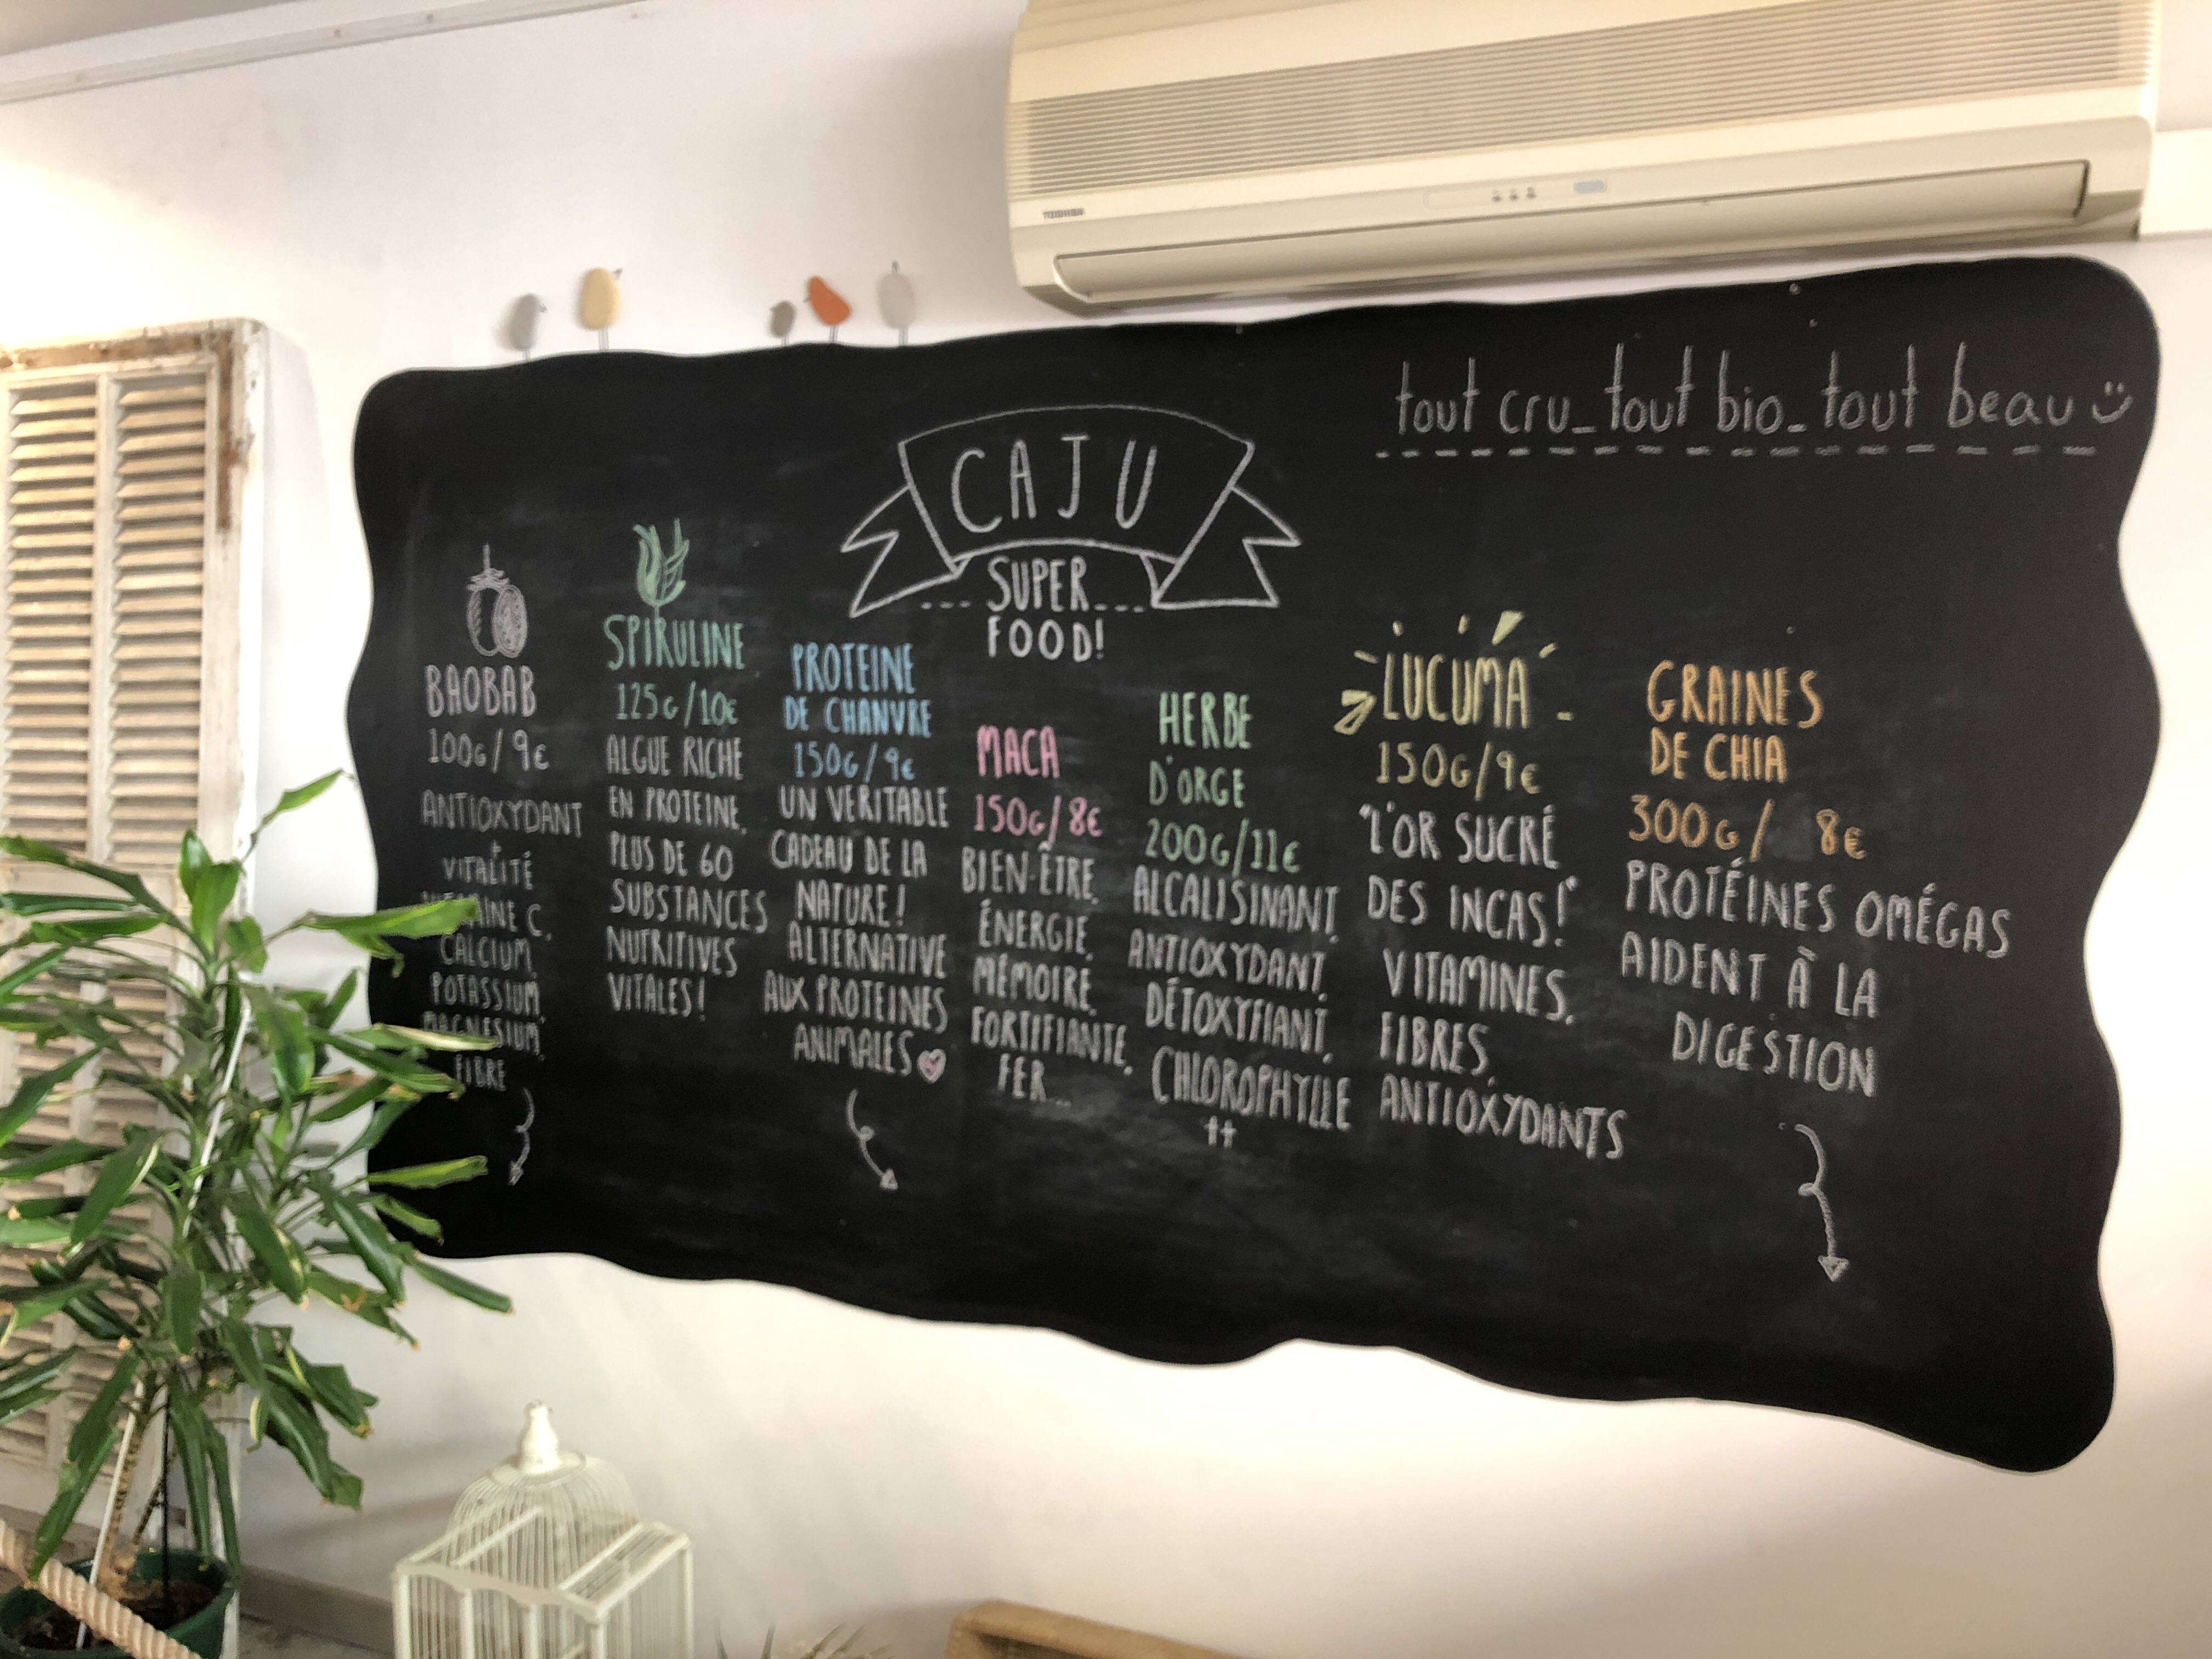 TOSHIBA
tout cru_tout bio_tout beau
CAJU
SUPER
FOOD!
BAOBAB
100G/9€
ANTIOXYDANT
+
VITALITÉ
VITAMINE C,
CALCIUM,
POTASSIUM,
MAGNESIUM,
FIBRE
SPIRULINE
125G/10€
ALGUE RICHE
EN PROTEINE,
PLUS DE 60
SUBSTANCES
NUTRITIVES
VITALES!
PROTEINE
DE CHANVRE
150G/9€
UN VERITABLE
CADEAU DE LA
NATURE!
ALTERNATIVE
AUX PROTEINES
ANIMALES
MACA
150G/8€
BIEN-ÊTRE,
ÉNERGIE,
MÉMOIRE,
FORTIFIANTE,
FER...
HERBE
D'ORGE
200G/11€
ALCALISINANT,
ANTIOXYDANT,
DÉTOXYFIANT,
CHLOROPHYLLE
++
LUCUMA
150G/9€
"L'OR SUCRÉ
DES INCAS!"
VITAMINES,
FIBRES,
ANTIOXYDANTS
GRAINES
DE CHIA
300G/ 8€
PROTÉINES OMÉGAS
AIDENT À LA
DIGESTION